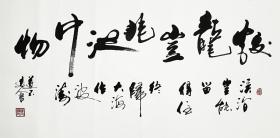 蛟龍豈池中物
溪澗
豈能
留
得住
終
歸
大海
作
波
濤